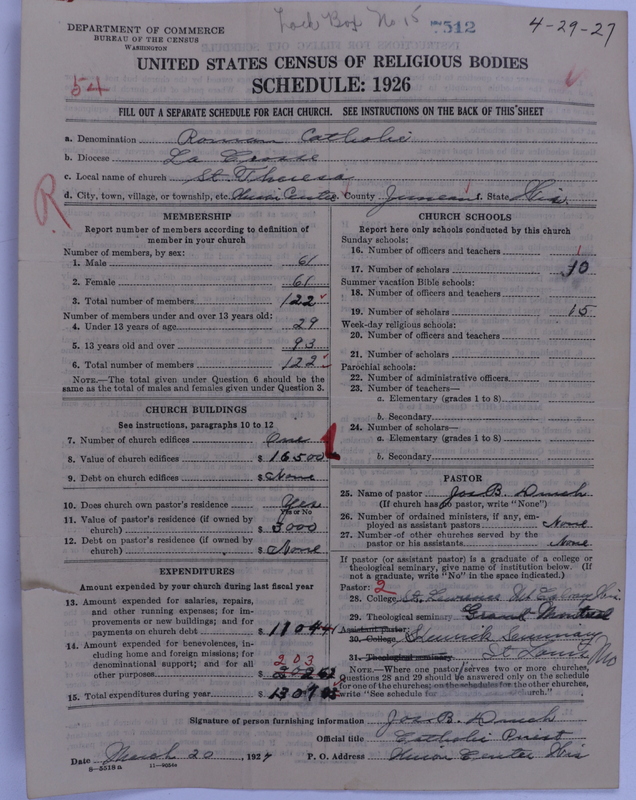 Lock Box No 15 7512 4-29-27
DEPARTMENT OF COMMERCE
BUREAU OF THE CENSUS
WASHINGTON
UNITED STATES CENSUS OF RELIGIOUS BODIES
54
SCHEDULE: 1926
FILL OUT A SEPARATE SCHEDULE FOR EACH CHURCH. SEE INSTRUCTIONS ON THE BACK OF THIS SHEET
a. Denomination Roman Catholic
b. Diocese La Crosse
c. Local name of church St. Theresa
R
d. City, town, village, or township, etc. Union Center County Juneau f. State Wis.
MEMBERSHIP
Report number of members according to definition of
member in your church
Number of members, by sex:
1. Male 61
2. Female 61
3. Total number of members 122
Number of members under and over 13 years old:
4. Under 13 years of age 29
5. 13 years old and over 93
6. Total number of members 122
NOTE.—The total given under Question 6 should be the
same as the total of males and females given under Question 3.
CHURCH BUILDINGS
See instructions, paragraphs 10 to 12
7. Number of church edifices One
8. Value of church edifices $ 16500
9. Debt on church edifices $ None
10. Does church own pastor's residence Yes
Yes or No
11. Value of pastor's residence (if owned by
church) $ 5000
12. Debt on pastor's residence (if owned by
church) $ None
EXPENDITURES
Amount expended by your church during last fiscal year
13. Amount expended for salaries, repairs,
and other running expenses; for im-
provements or new buildings; and for
payments on church debt $ 1104
14. Amount expended for benevolences, in-
cluding home and foreign missions; for
denominational support; and for all
other purposes $ 203
15. Total expenditures during year $ 1307
CHURCH SCHOOLS
Report here only schools conducted by this church
Sunday schools:
16. Number of officers and teachers 1
17. Number of scholars 10
Summer vacation Bible schools:
18. Number of officers and teachers
19. Number of scholars 15
Week-day religious schools:
20. Number of officers and teachers
21. Number of scholars
Parochial schools:
22. Number of administrative officers
23. Number of teachers—
a. Elementary (grades 1 to 8)
b. Secondary
24. Number of scholars—
a. Elementary (grades 1 to 8)
b. Secondary
PASTOR
25. Name of pastor Jos. B.
(If church has no pastor, write "None")
26. Number of ordained ministers, if any, em-
ployed as assistant pastors None
27. Number of other churches served by the
pastor or his assistants None
If pastor (or assistant pastor) is a graduate of a college or
theological seminary, give name of institution below. (If
not a graduate, write "No" in the space indicated.)
Pastor: 2
28. College St. Lawrence Mt Calvary Wis.
29. Theological seminary Grand Montreal
Assistant pastor:
30. College Kenrick Seminary
31. Theological seminary St Louis Mo
NOTE.—Where one pastor serves two or more churches,
Questions 28 and 29 should be answered only on the schedule
for one of the churches; on the schedules for the other churches,
write "See schedule for church."
Signature of person furnishing information Jos. B.
Official title Catholic Priest
Date March 20, 1927 P. O. Address Union Center Wis
8—5518a 11—9354